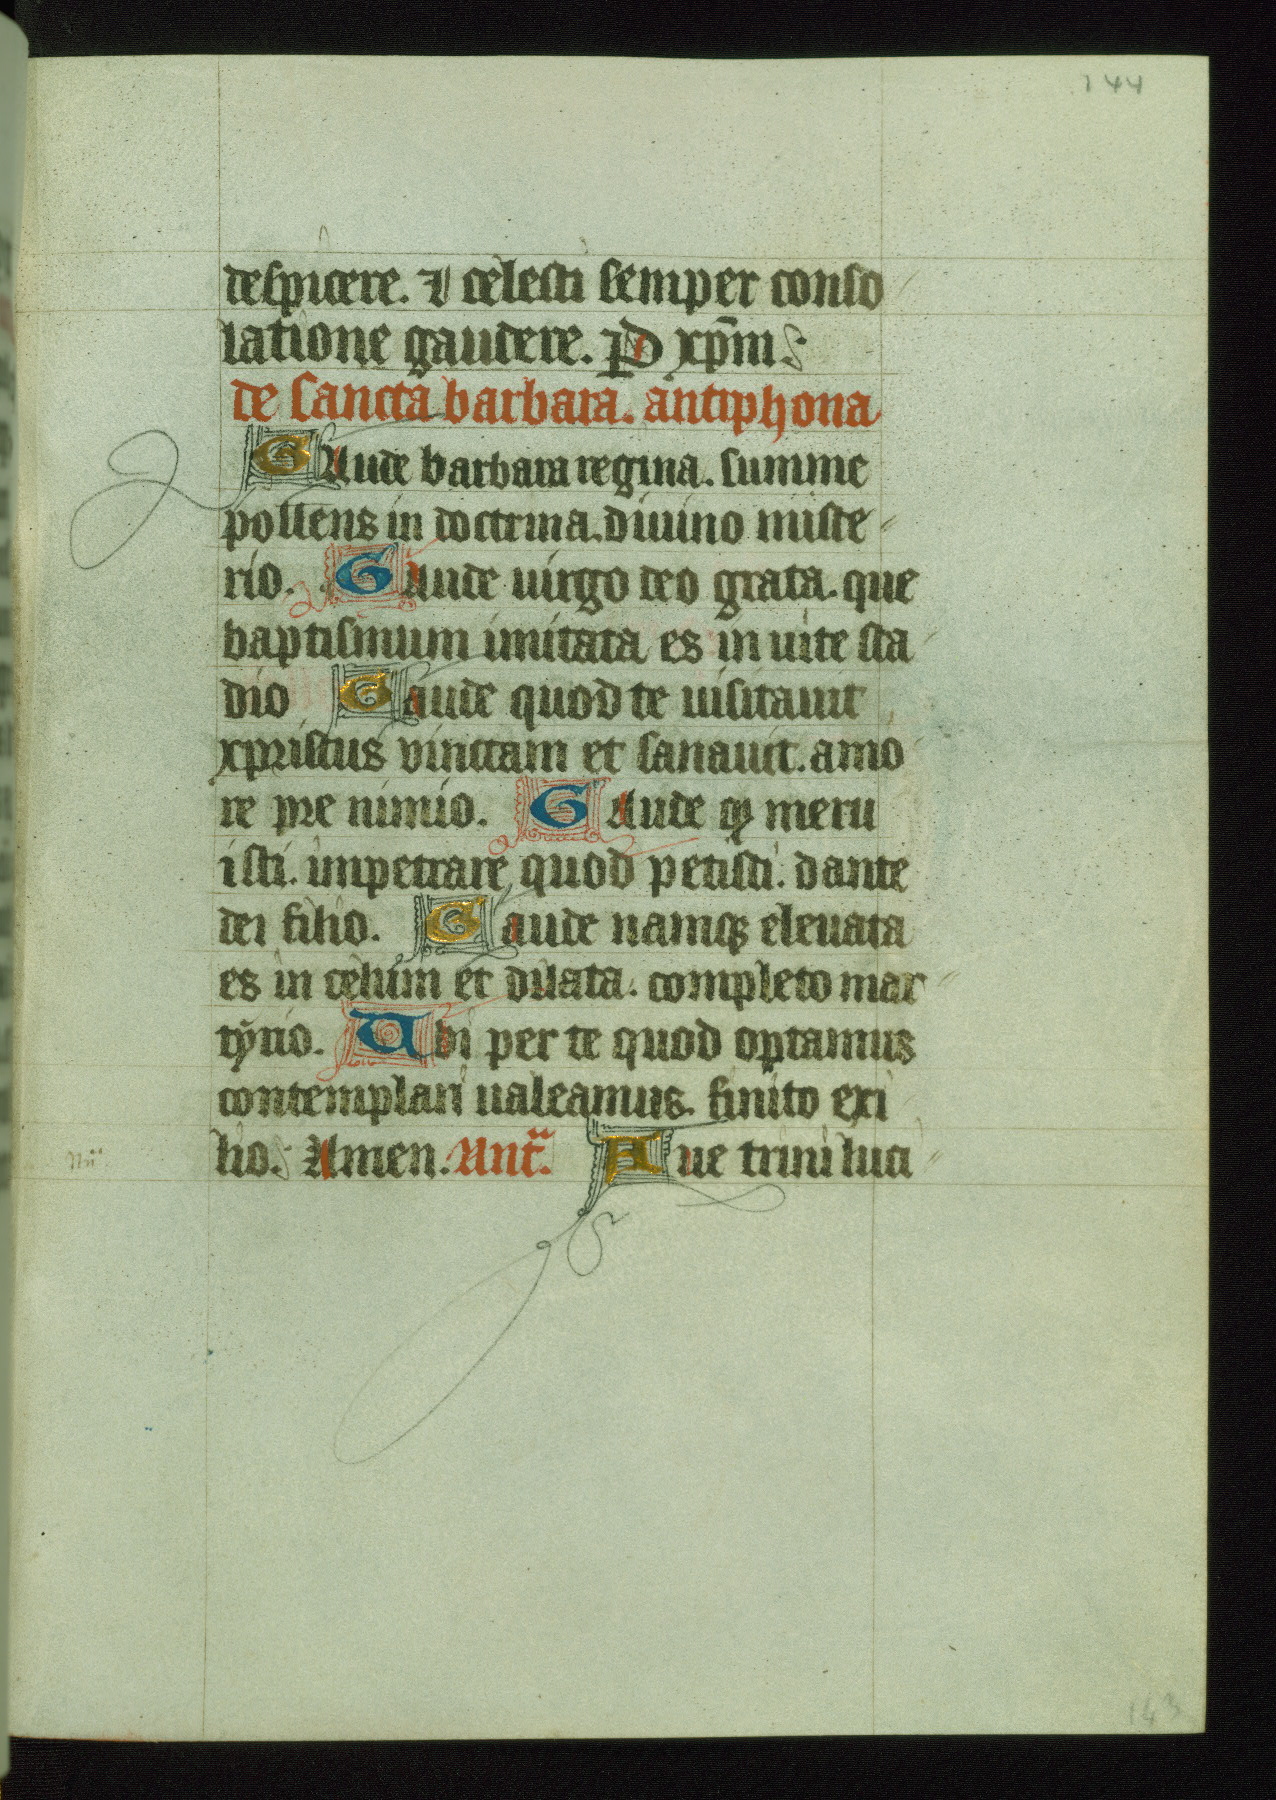 144
despicere. ⁊ celesti semper conso
latione gaudere. P xp̄m
de sancta barbara. antiphona
Gaude barbara regina. summe
pollens in doctrina. diuino miste
rio. Gaude uirgo deo grata. que
baptismum imitata es in uite sta
dio Gaude quod te uisitauit
xpristus vinctam et sanauit. amo
re pre nimio. Gaude qꝫ meru
isti. impetrare quod petisti. dante
dei filio. Gaude namqꝫ eleuata
es in celum et dilata. completo mar
tẏrio. Vbi per te quod optamus
contemplari ualeamus. finito exi
lio. Amen. Ant̄. Aue trini luci
143